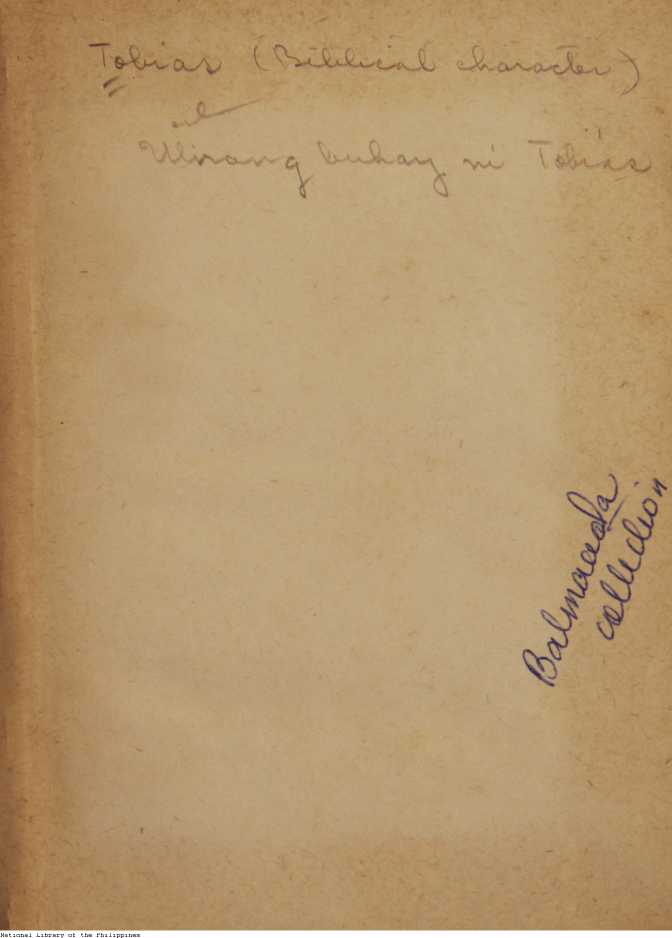 Tobias (Biblical character)
Ulirang buhay ni Tobias
Balmaceda
collection
National Library of the Philippines